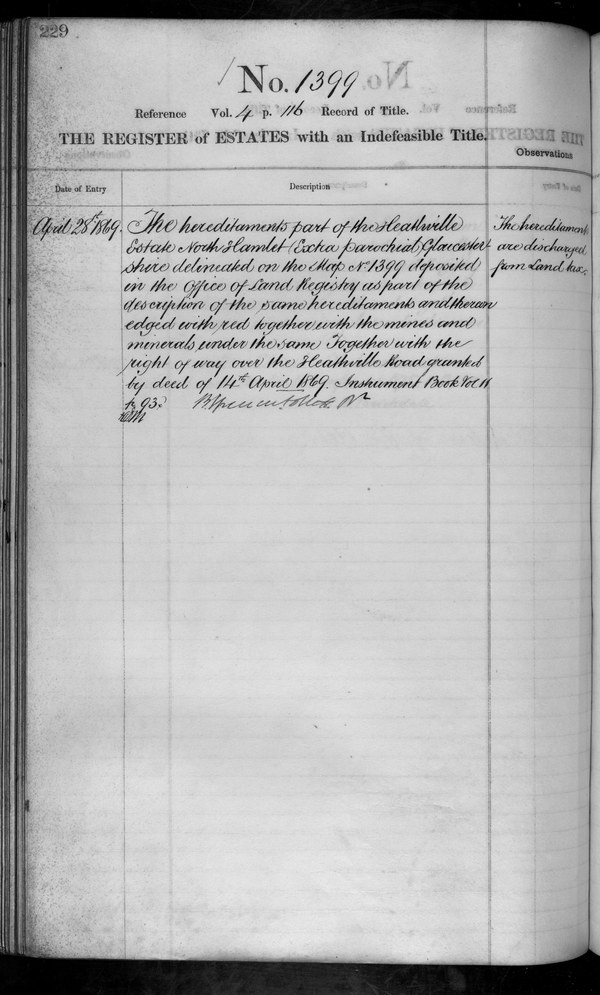 229
No. 1399
Reference Vol. 4 p. 116 Record of Title.
THE REGISTER of ESTATES with an Indefeasible Title.
Observations
Date of Entry
Description
April 28th 1869.
The hereditaments part of the Heathville
Estate North Hamlet (Extra parochial) Gloucester
shire delineated on the Map No. 1399 deposited
in the Office of Land Registry as part of the
description of the same hereditaments and thereon
edged with red together with the mines and
minerals under the same Together with the
right of way over the Heathville Road granted
by deed of 14th April 1869. Instrument Book Vol 11
p 93.
The hereditaments
are discharged
from Land tax.